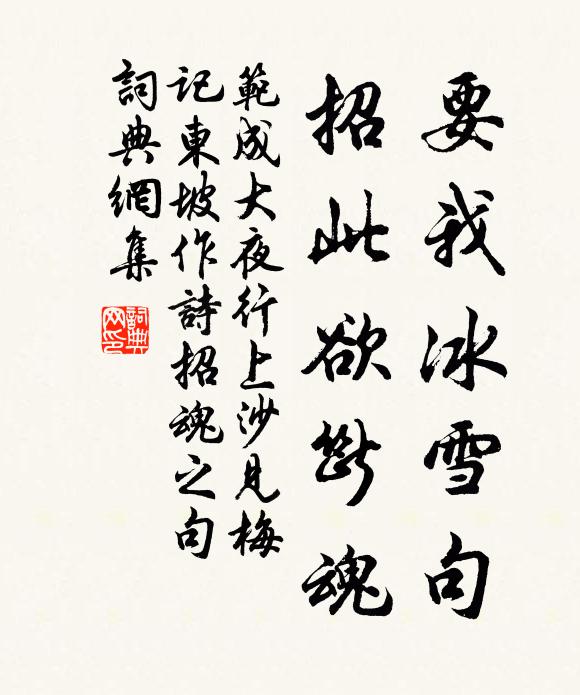 要我冰雪句
招此欲斷魂
範成大夜行上沙見梅
記東坡作詩招魂之句
詞典網集
詞典网印